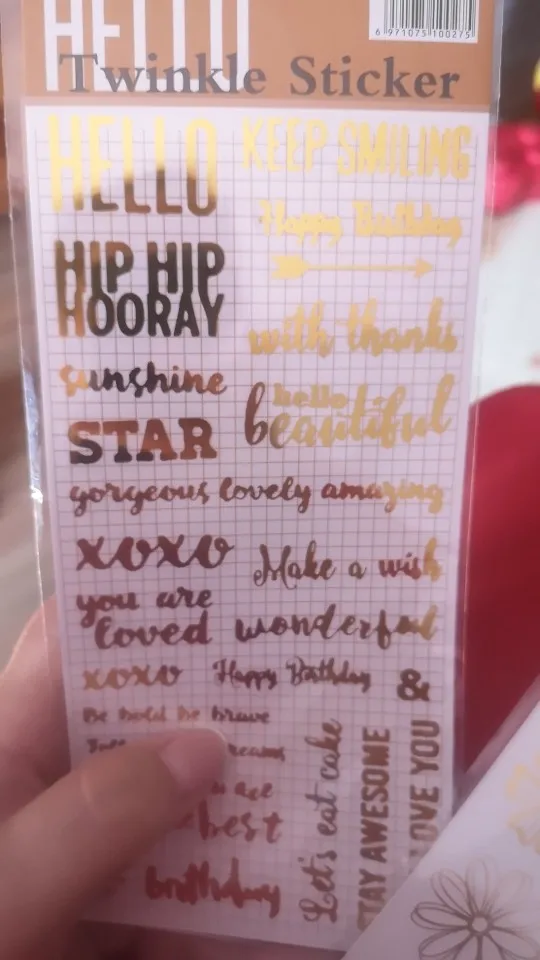 HELLO
6 971075 100275
Twinkle Sticker
HELLO
KEEP SMILING
Happy Birthday
HIP HIP
HOORAY
with thanks
sunshine
hello
beautiful
STAR
gorgeous lovely amazing
xoxo
Make a wish
you are
loved
wonderful
xoxo
Happy Birthday
&
Be bold be brave
best
birthday
Let's eat cake
STAY AWESOME
LOVE YOU